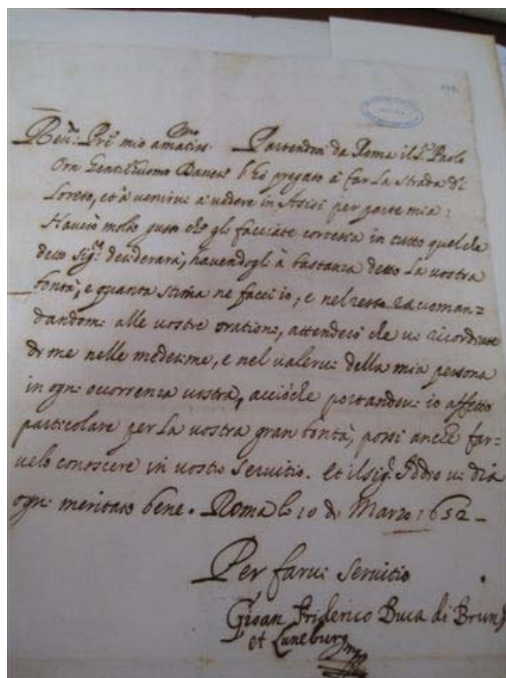 Reu: Pre mio amatiss.mo Partendosi da Roma il Sr Paolo
Orn Gentilhuomo Danese l'ho pregato à far La strada di
Loreto, et à venirui à uedere in Assisi per parte mia:
Hauerò molto gusto che gli facciate cortesia in tutto quel che
detto Sigr desiderarà, hauendogli à bastanza detto La uostra
bontà, e quanta stima ne facci io, e nel resto racoman=
dandomi alle uostre orationi, attenderò che ui ricordiate
di me nelle medesime, e nel ualerui della mia persona
in ogni occorrenza uostra, acciòche portandoui io affetto
particolare per La uostra gran bontà, possi anche far=
uelo conoscere in uostro seruitio. Et il sigr Iddio ui dia
ogni meritato bene. Roma li 10 di Marzo 1652 -
Per farui seruitio
Gioan Friderico Duca di Bruns
et Luneburg